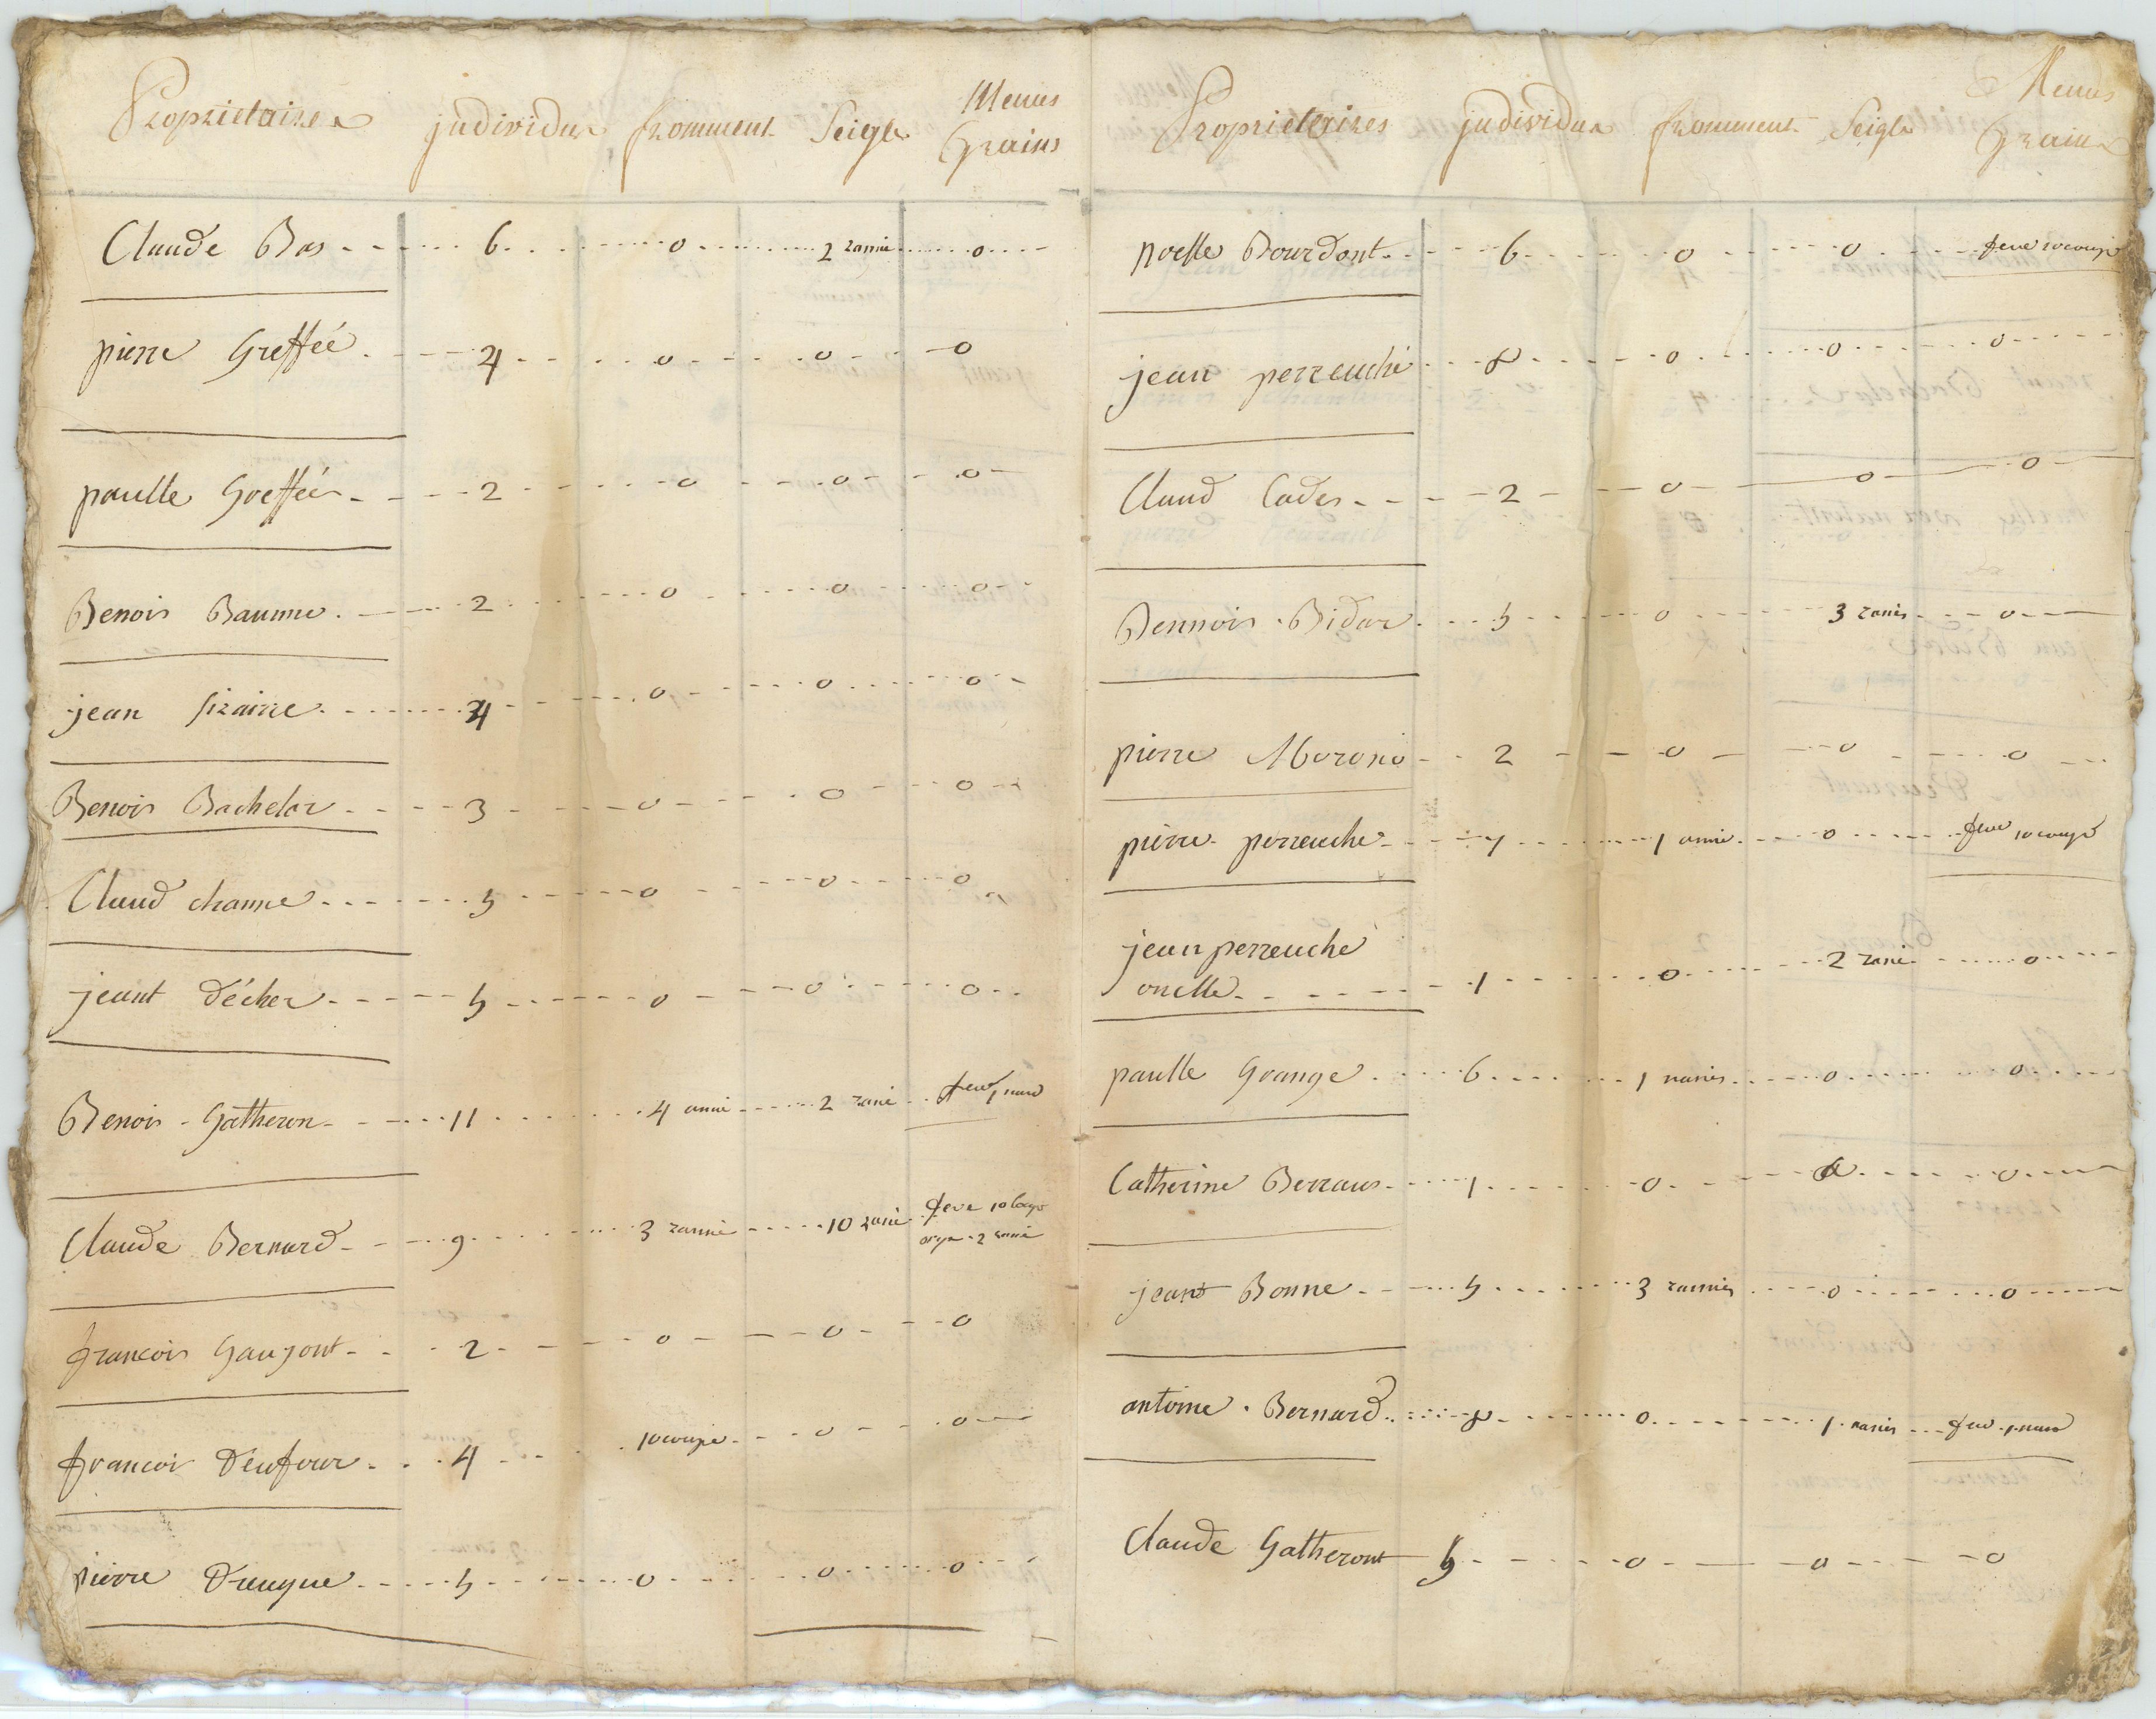 Proprietaires individus fromment Seigle Menus
Grains
Claude Bas 6 0 2 rannée 0
pierre Greffée 4 0 0 0
paulle Greffée 2 0 0 0
Benois Baumme 2 0 0 0
jean 4 0 0 0
Benois Bachelar 3 0 0 0
Claud channe 5 0 0 0
jeant décher 5 0 0 0
Benois Gatheron 11 4 2 feve 1
Claude Bernard 9 3 10 feve 10
orge 2
francois Gaujont 2 0 0 0
francoi deufour 4 10 coupe 0 0
pierre 5 0 0 0
Proprietaires individus fromment Seigle Menus
Grains
noelle Bourdont 6 0 0 feve 10 coupe
jean perreuche 8 0 0 0
Claud Cades 2 0 0 0
Bennois Bidar 5 0 3 0
pierre 2 0 0 0
pierre perreuche 7 1 0 feve 10 coupe
jean perreuche
onclle 1 0 2 0
paulle Grange 6 1 0 0
Catherine Berraus 1 0 0 0
jeant Bonne 5 3 0 0
antoine Bernard 8 0 1 feve 1
Claude Gatheront 5 0 0 0